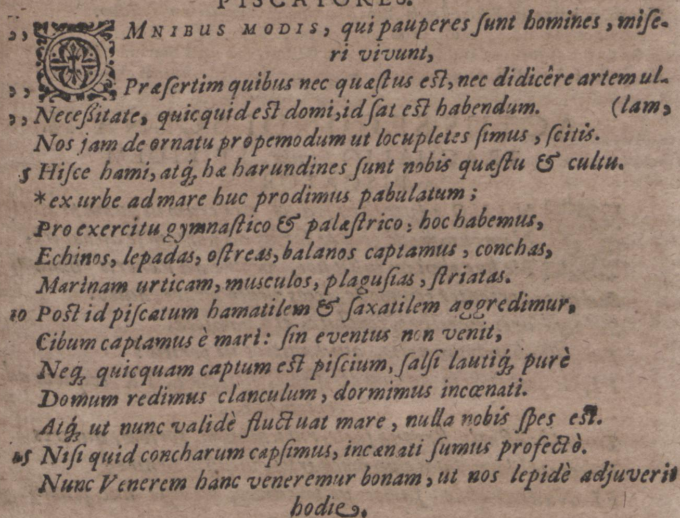 PISCATORES.
,, OMNIBUS MODIS, qui pauperes ſunt homines, miſe-
ri vivunt,
,, Præſertim quibus nec quæſtus eſt, nec didicêre artem ul-
,, Neceßitate, quicquid eſt domi, id ſat eſt habendum. (lam,
Nos jam de ornatu propemodum ut locupletes ſimus, ſcitis.
5 Hiſce hami, atq́; hæ harundines ſunt nobis quæſtu & cultu.
*ex urbe ad mare huc prodimus pabulatum;
Pro exercitu gymnaſtico & palæſtrico; hoc habemus,
Echinos, lepadas, oſtreas, balanos captamus, conchas,
Marinam urticam, muſculos, plaguſias, ſtriatas.
10 Poſt id piſcatum hamatilem & ſaxatilem aggredimur,
Cibum captamus è mari: ſin eventus non venit,
Neq; quicquam captum eſt piſcium, ſalſi lautiq́; purè
Domum redimus clanculum, dormimus incœnati.
Atq́; ut nunc validè fluctuat mare, nulla nobis ſpes eſt.
15 Niſi quid concharum capſimus, incænati ſumus profectò.
Nunc Venerem hanc veneremur bonam, ut nos lepidè adjuverit
hodie.